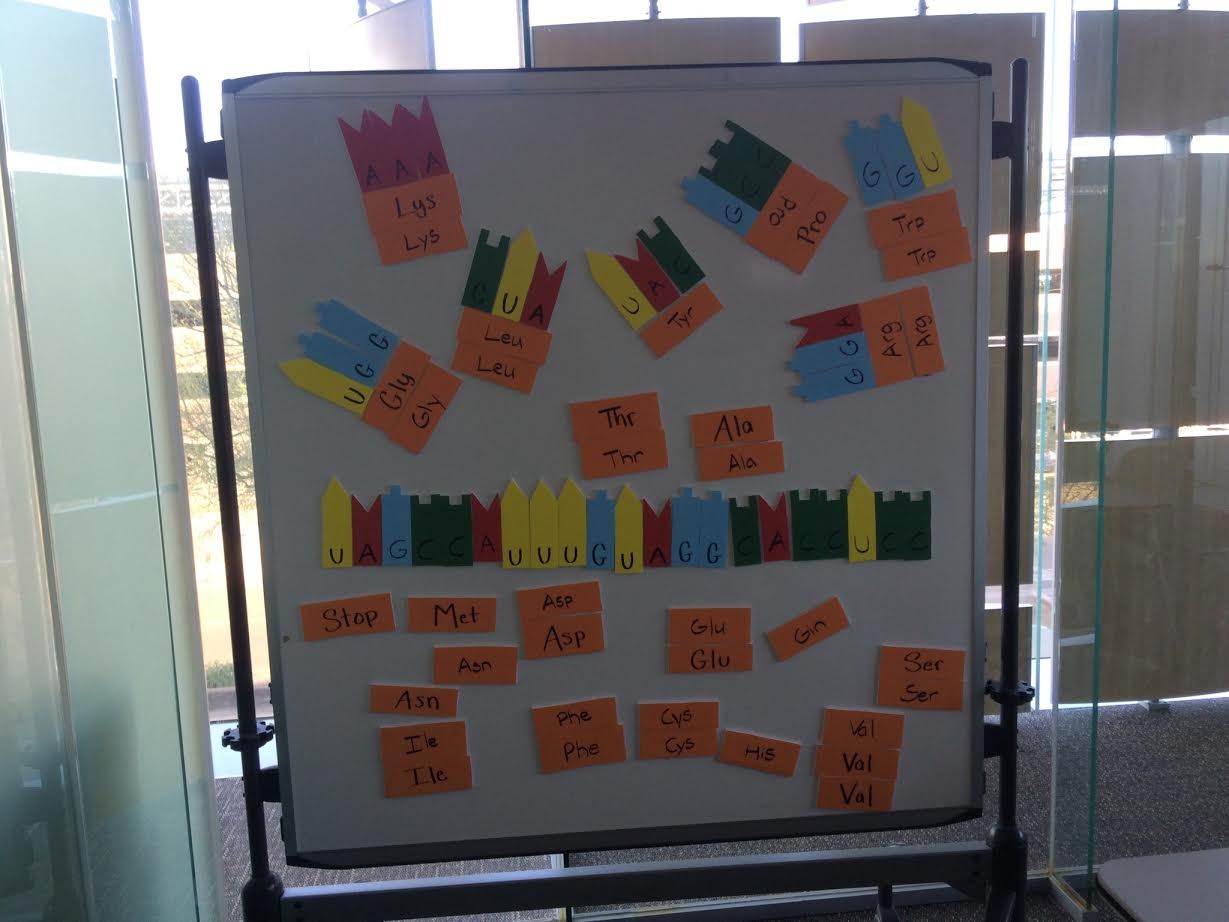 A A A
Lys
Lys
G C C
Pro
Pro
G G U
Trp
Trp
C U A
Leu
Leu
U A C
Tyr
U G G
Gly
Gly
G G A
Arg
Arg
Thr
Thr
Ala
Ala
U A G C C A U U U G U A G G C A C C U C C
Stop
Met
Asp
Asp
Glu
Glu
Gin
Asn
Ser
Ser
Asn
Ile
Ile
Phe
Phe
Cys
Cys
His
Val
Val
Val